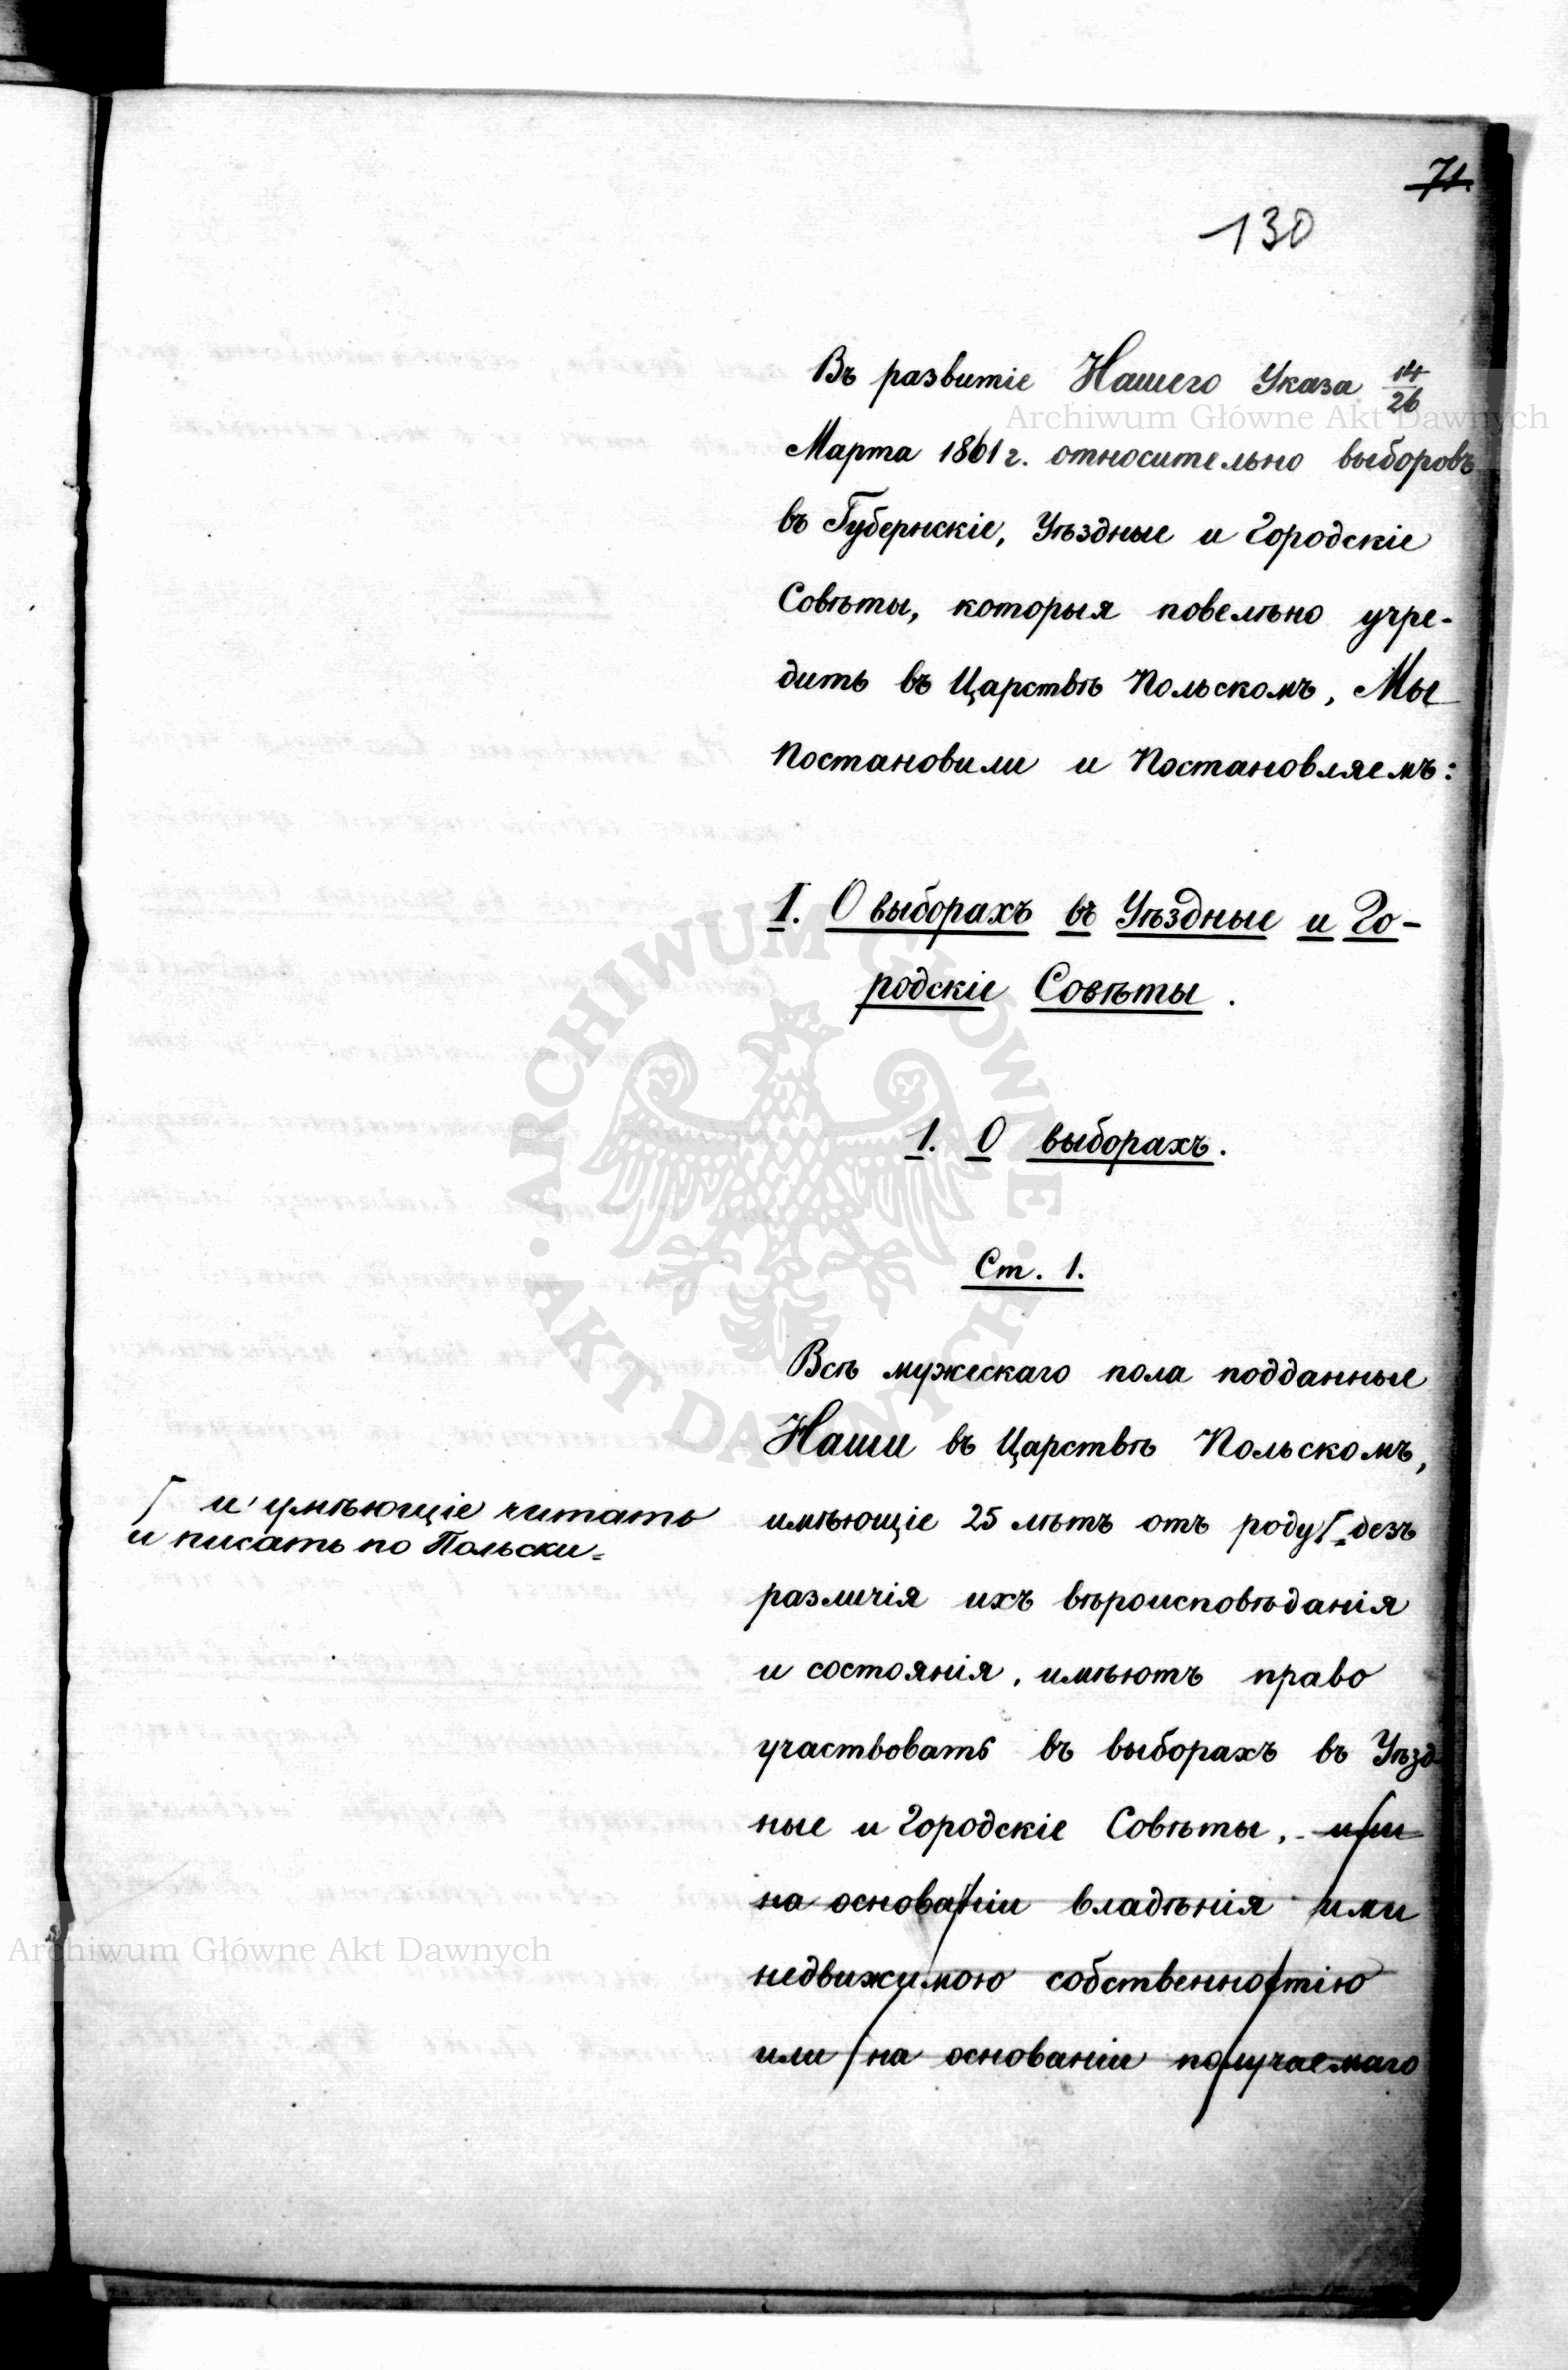 71.
130
Въ развитіе Нашего Указа 14/26
Марта 1861 г. относительно выборовъ
въ Губернскіе, Уѣздные и Городскіе
Совѣты, которыя повелѣно учре-
дить въ Царствѣ Польскомъ, Мы
Постановили и Постановляемъ:
I. О выборахъ въ Уѣздные и Го-
родскіе Совѣты.
1. О выборахъ.
Ст. 1.
Всѣ мужескаго пола подданные
Наши въ Царствѣ Польскомъ,
и умѣющіе читать
и писать по Польски
имѣющіе 25 лѣтъ отъ роду, безъ
различія ихъ вѣроисповѣданія
и состоянія, имѣютъ право
участвовать въ выборахъ въ Уѣзд
ные и Городскіе Совѣты, или
на основаніи владѣнія ими
недвижимою собственностію
или на основаніи получаемаго
Archiwum Główne Akt Dawnych
Archiwum Główne Akt Dawnych
ARCHIWUM GŁÓWNE · AKT DAWNYCH ·